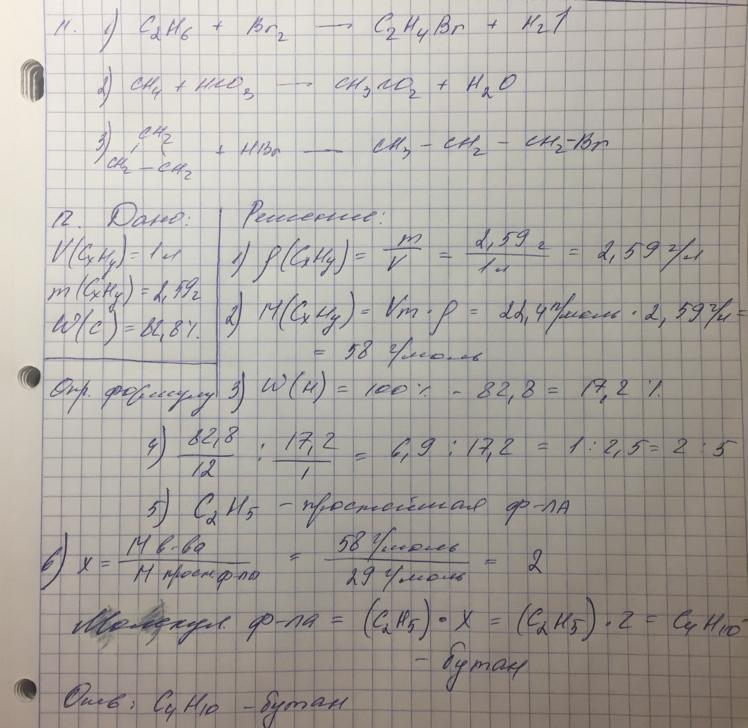 11. 1) C₂H₆ + Br₂ — C₂H₄Br + H₂↑
2) CH₄ + HNO₃ — CH₃NO₂ + H₂O
3) CH₂
CH₂ – CH₂ + HBr — CH₃ – CH₂ – CH₂–Br
12. Дано: Решение:
V(CxHy) = 1л 1) ρ(CxHy) = m/V = 2,59 г/1л = 2,59 г/л
m(CxHy) = 2,59г
W(C) = 82,8% 2) M(CxHy) = Vm · ρ = 22,4 л/моль · 2,59 г/л =
= 58 г/моль
Опр. формулу 3) W(H) = 100% - 82,8 = 17,2 %
4) 82,8/12 : 17,2/1 = 6,9 : 17,2 = 1 : 2,5 = 2 : 5
5) C₂H₅ – простейшая ф-ла
6) x = M в-ва/M прост.ф-лы = 58 г/моль/29 г/моль = 2
Молекул. ф-ла = (C₂H₅) · x = (C₂H₅) · 2 = C₄H₁₀
– бутан
Отв: C₄H₁₀ – бутан